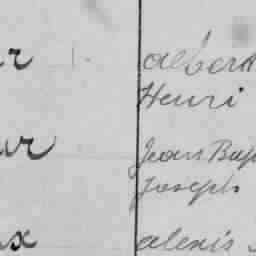 albert
Henri
Jean Bap
Joseph
alexis